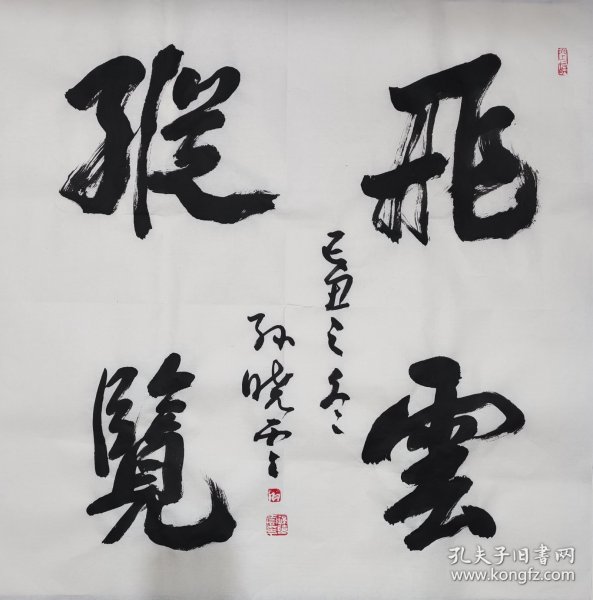 飛雲
縱覽
己丑之冬
孙晓云
孔夫子旧书网
www.kongfz.com